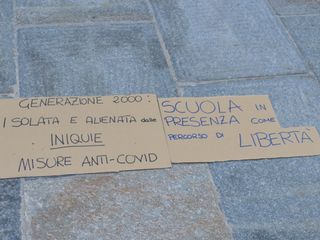 GENERAZIONE 2000:
ISOLATA E ALIENATA dalle
INIQUE
MISURE ANTI-COVID
SCUOLA IN
PRESENZA COME
PERCORSO DI LIBERTÀ